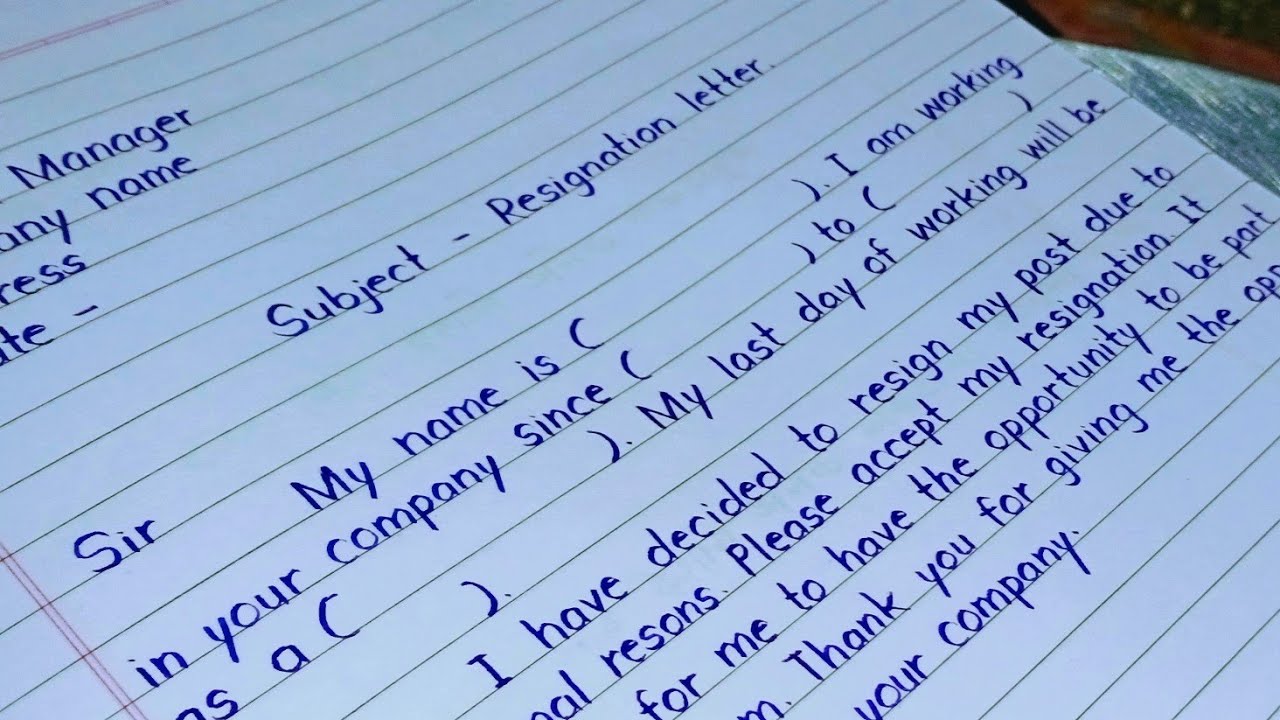 Manager
any name
ress
ate -
Subject - Resignation letter.
Sir
My name is ( ). I am working
in your company since ( ) to ( )
as a ( ). My last day of working will be
).
I have decided to resign my post due to
nal resons. Please accept my resignation. It
for me to have the opportunity to be part
m. Thank you for giving me the opp
your company.